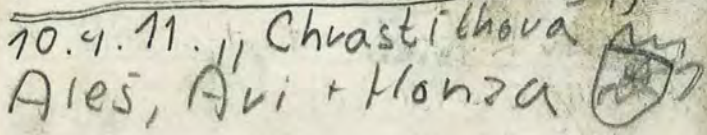 10.4.11. „Chrastítková
Aleš, Avi + Honza